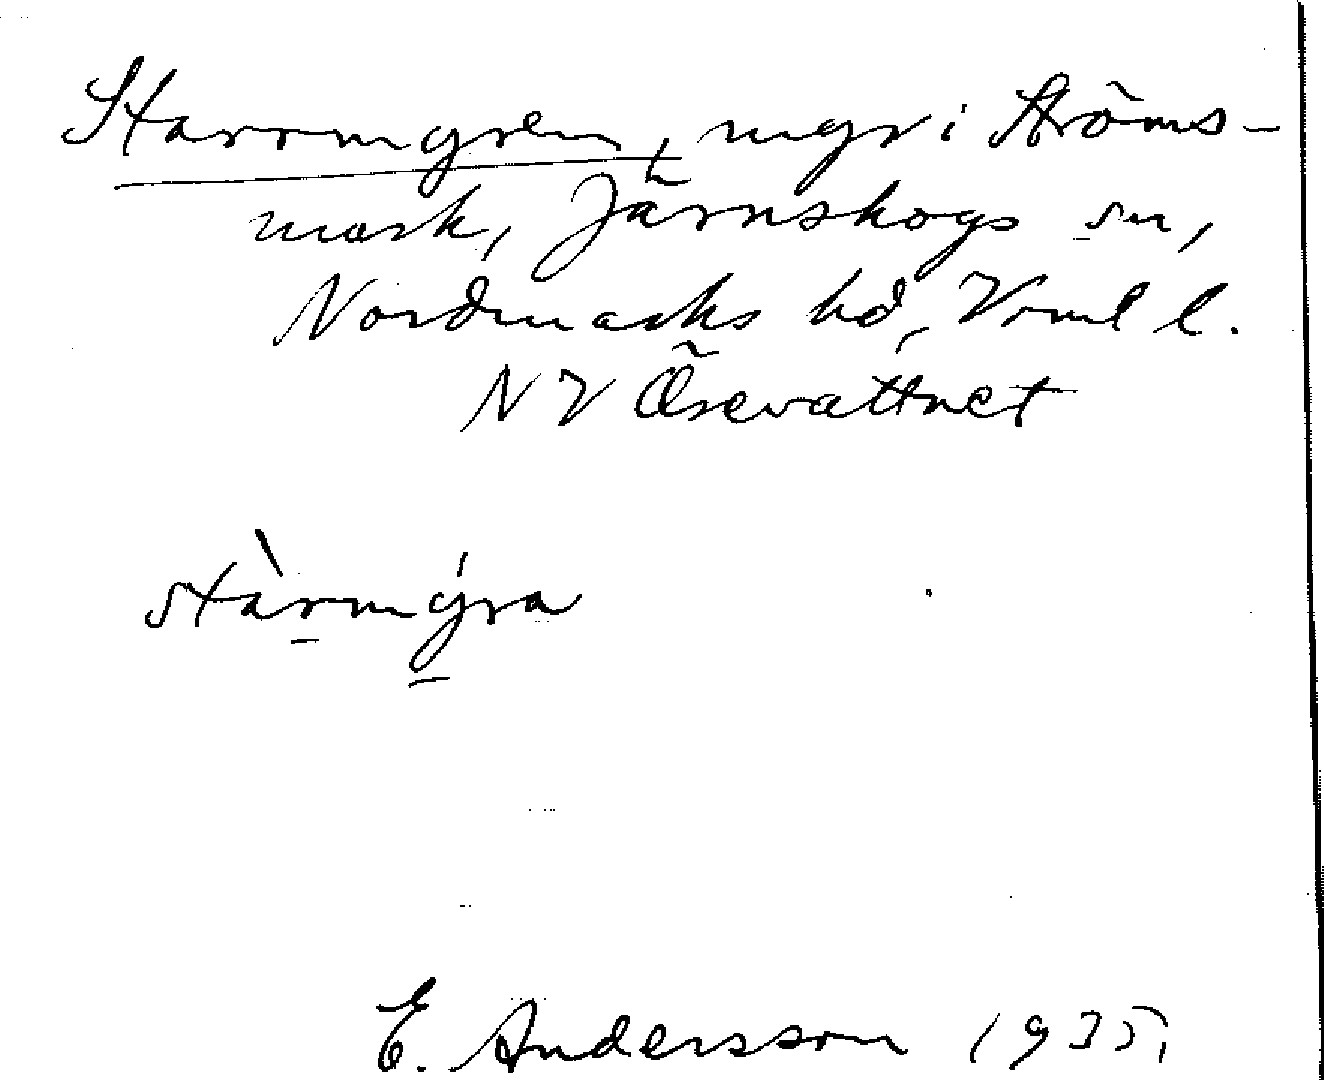 Starrmyren, myr i Ströms-
mark, Järnskogs sn,
Nordmarks hd, Vrml l.
NV Örsevattnet
stàrmýra
E. Andersson 1935